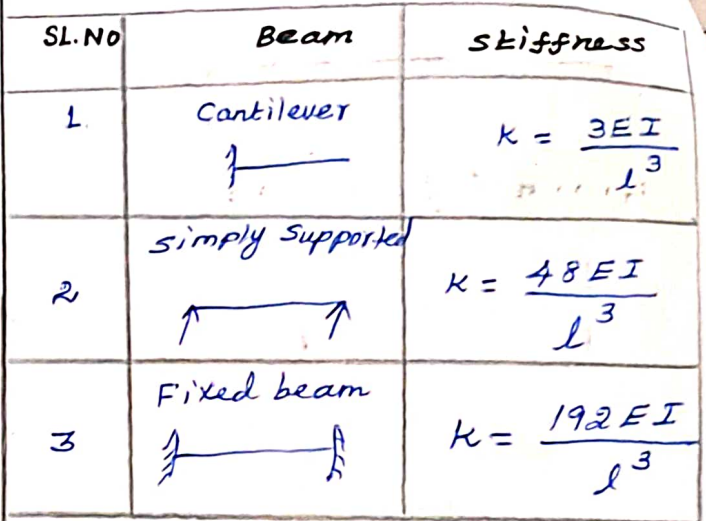 SL.NO Beam Stiffness
1. Cantilever K = 3EI / l^3
2 Simply Supported K = 48EI / l^3
3 Fixed beam K = 192EI / l^3